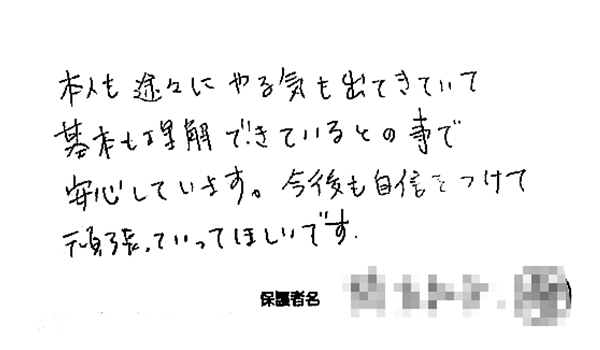 本人も途々にやる気も出てきていて
基本も理解できているとの事で
安心しています。今後も自信をつけて
頑張っていってほしいです.
保護者名